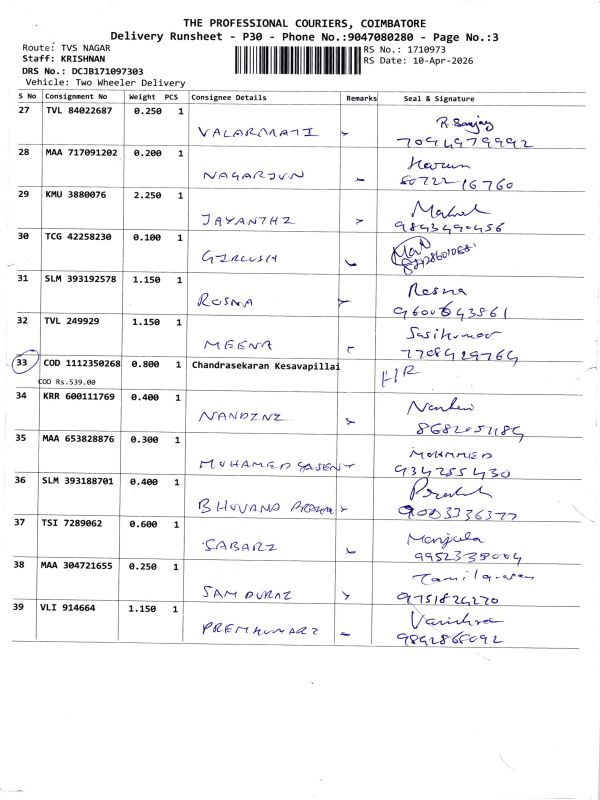 THE PROFESSIONAL COURIERS, COIMBATORE
Delivery Runsheet - P30 - Phone No.:9047080280 - Page No.:3
Route: TVS NAGAR
RS No.: 1710973
Staff: KRISHNAN
RS Date: 10-Apr-2026
DRS No.: DCJB171097303
Vehicle: Two Wheeler Delivery
S No Consignment No Weight PCS Consignee Details Remarks Seal & Signature
27 TVL 84022687 0.250 1
VALARMATI R. Sanjay
7094979992
28 MAA 717091202 0.200 1
NAGARJUN Harun
29 KMU 3880076 2.250 1
JAYANTHI
9843490456
30 TCG 42258230 0.100 1
31 SLM 393192578 1.150 1
ROSNA Rosna
9600643861
32 TVL 249929 1.150 1
MEENA Sasikumar
7708929764
33 COD 1112350268 0.800 1 Chandrasekaran Kesavapillai
COD Rs.539.00
34 KRR 600111769 0.400 1
NANDINI
35 MAA 653828876 0.300 1
MOHAMED YASEN MOHMMED
934255430
36 SLM 393188701 0.400 1
BHUVANA
9003336377
37 TSI 7289062 0.600 1
SABARI Manjula
38 MAA 304721655 0.250 1
Tamilarasan
9751824270
39 VLI 914664 1.150 1
PREMKUMAR